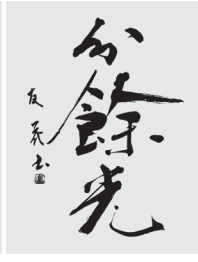 分餘光
友義書